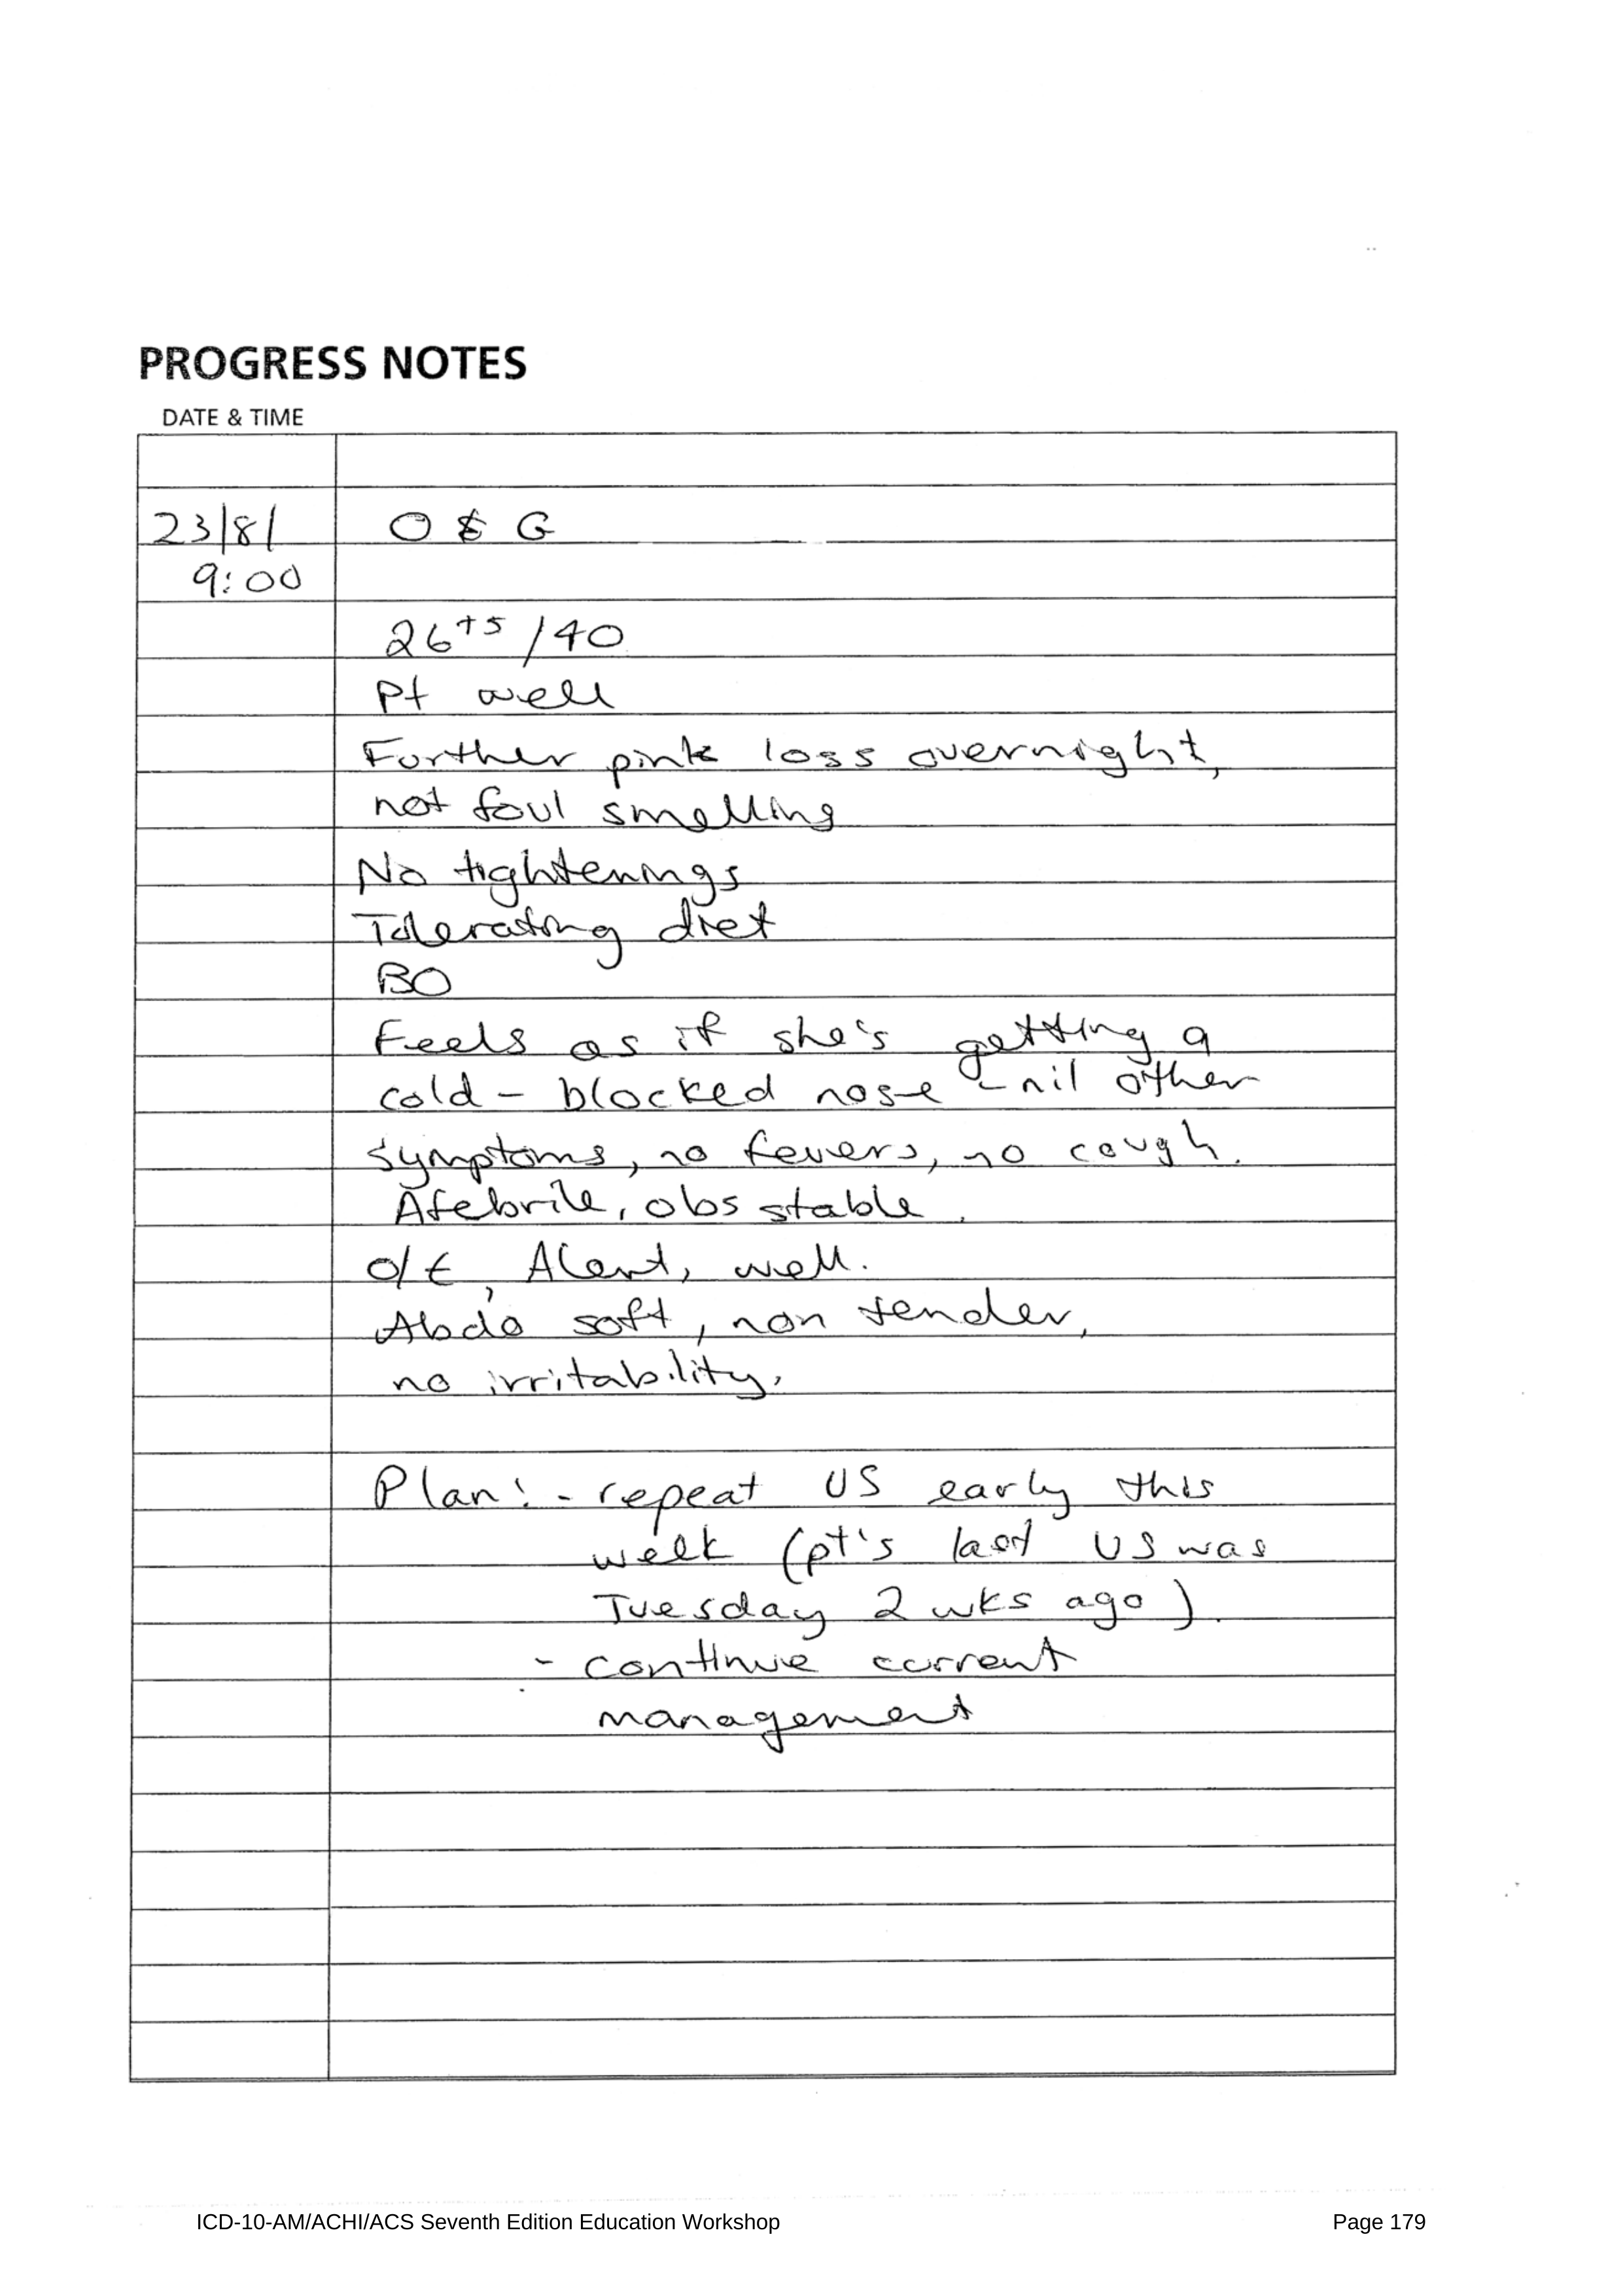 PROGRESS NOTES
DATE & TIME
23/8/ O & G
9:00
26+5/40
Pt well
Further pink loss overnight,
not foul smelling
No tightenings
Tolerating diet
BO
Feels as if she's getting a
cold - blocked nose - nil other
symptoms, no fevers, no cough.
Afebrile, obs stable.
O/E, Alert, well.
Abdo soft, non tender,
no irritability.
Plan: - repeat US early this
week (pt's last US was
Tuesday 2 wks ago).
- continue current
management
ICD-10-AM/ACHI/ACS Seventh Edition Education Workshop Page 179